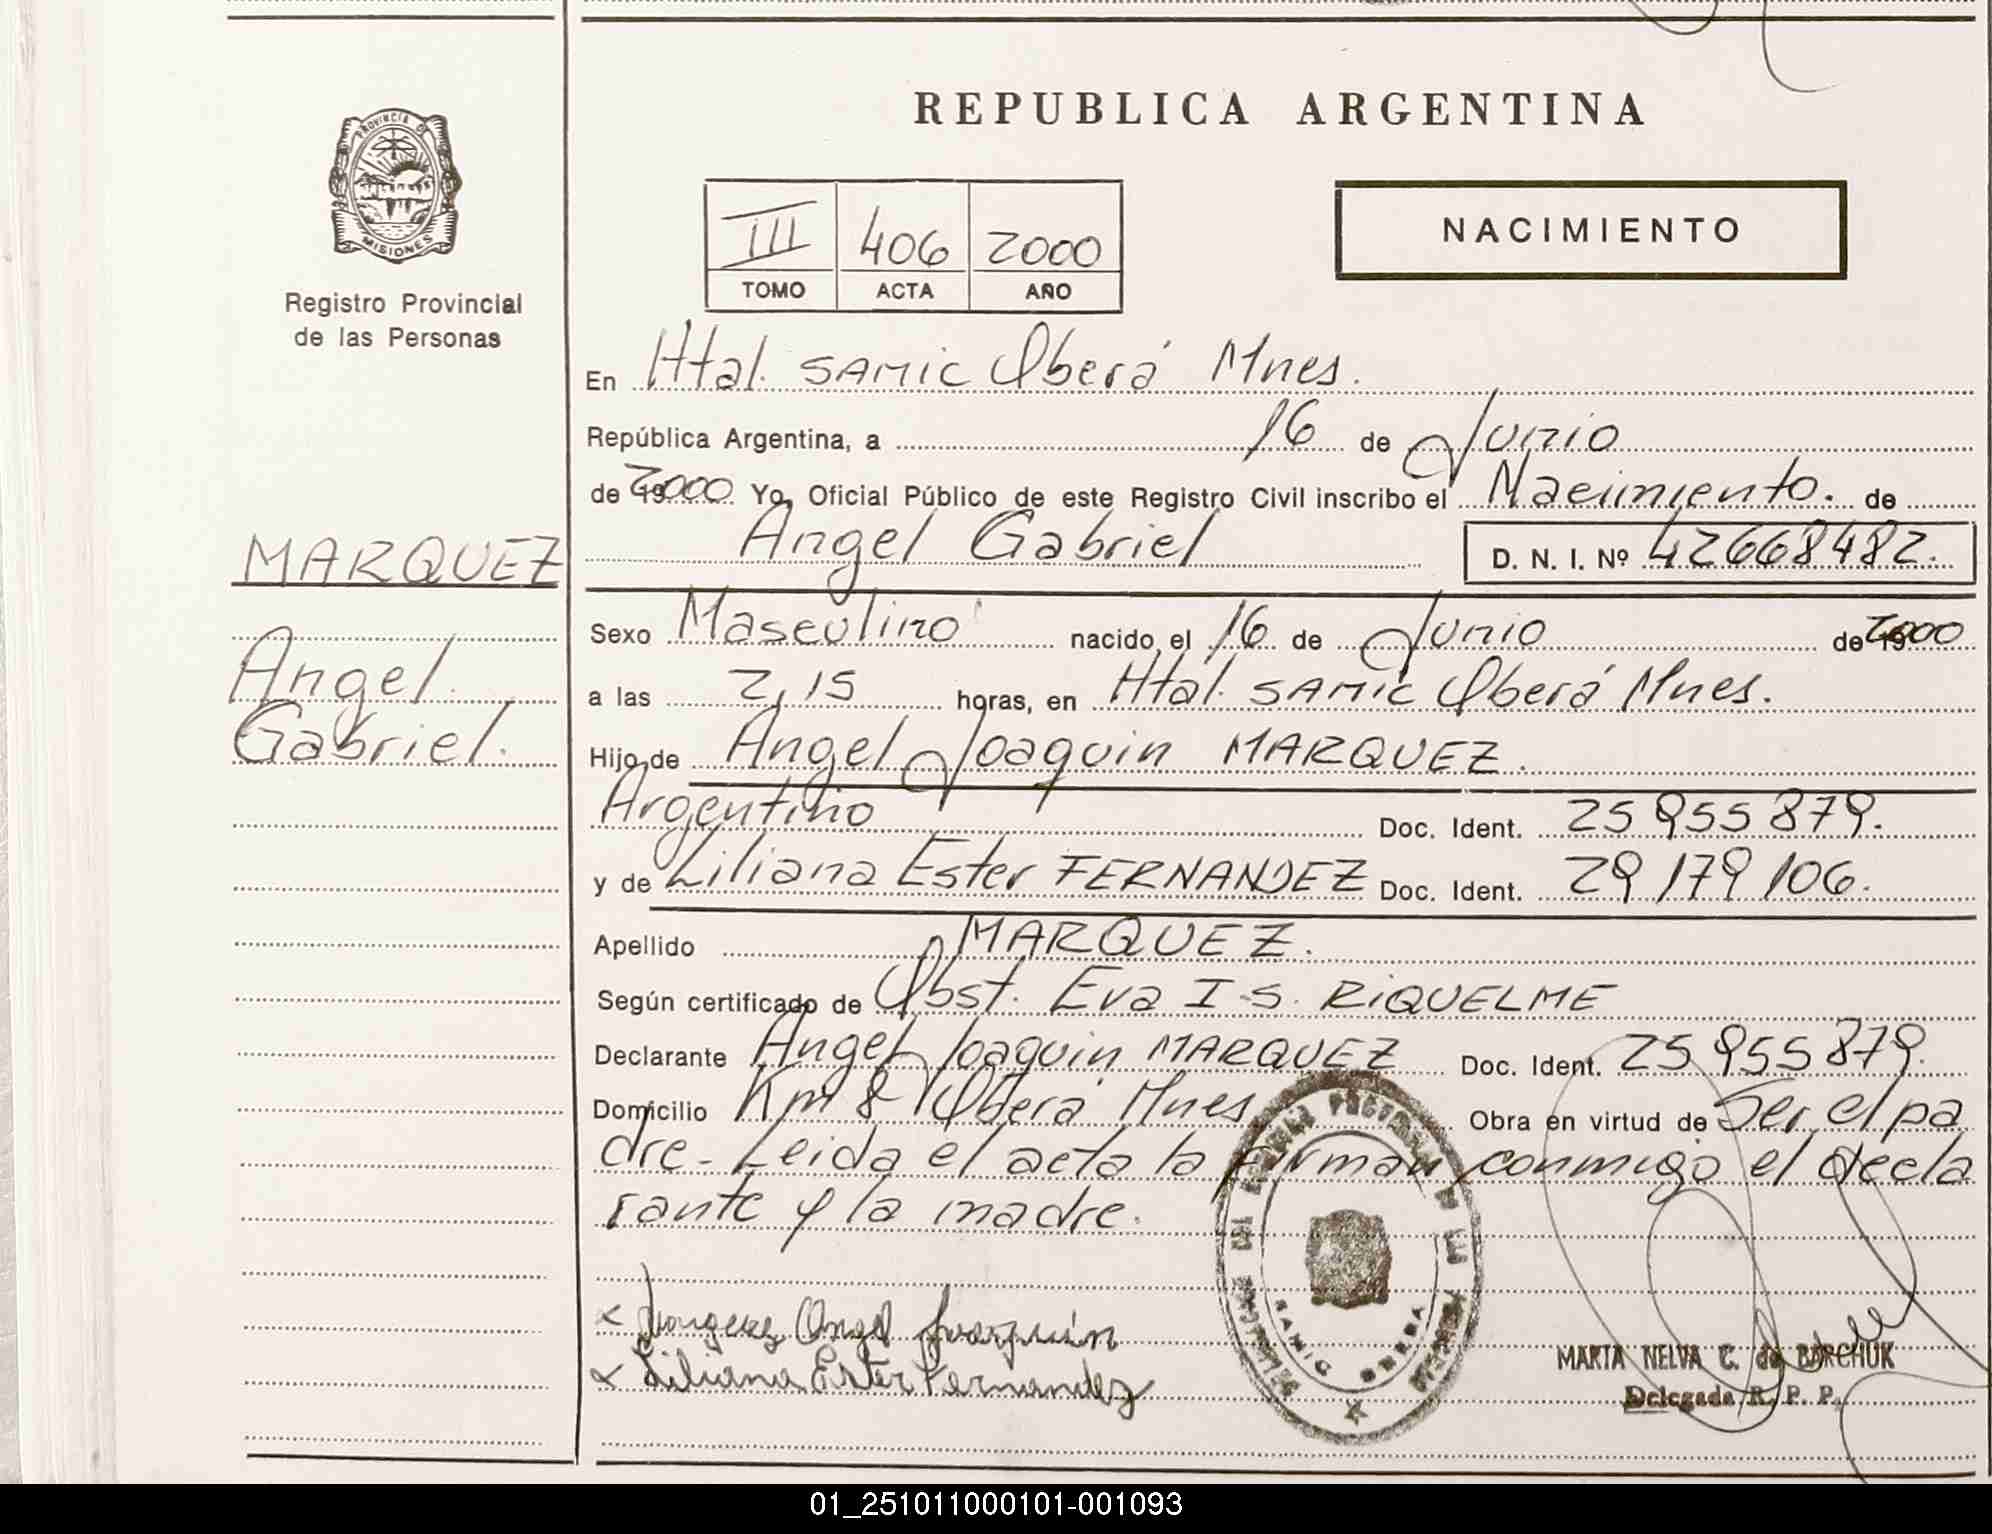 REPUBLICA ARGENTINA
PROVINCIA DE
MISIONES
Registro Provincial
de las Personas
III 406 2000
TOMO ACTA AÑO
NACIMIENTO
En Htal. SAMIC Oberá Mnes.
República Argentina, a 16 de Junio
de 2000 Yo, Oficial Público de este Registro Civil inscribo el Nacimiento. de
MARQUEZ
Angel
Gabriel.
Angel Gabriel D. N. I. Nº 42668482.
Sexo Masculino nacido el 16 de Junio de 2000
a las 2,15 horas, en Htal. SAMIC Oberá Mnes.
Hijo de Angel Joaquin MARQUEZ.
Argentino Doc. Ident. 25 955 879.
y de Liliana Ester FERNANDEZ Doc. Ident. 29 179 106.
Apellido MARQUEZ.
Según certificado de Obst. Eva I.S. RiQUELME
Declarante Angel Joaquin MARQUEZ Doc. Ident. 25 955 879.
Domicilio Km 8 Oberá Mnes Obra en virtud de Ser el pa
dre - Leida el acta la firman conmigo el decla
rante y la madre.
x Marquez Angel Joaquin
x Liliana Ester Fernandez
SAMIC OBERA
MARTA NELVA C. de BARCHUK
Delegada R. P. P.
01_251011000101-001093